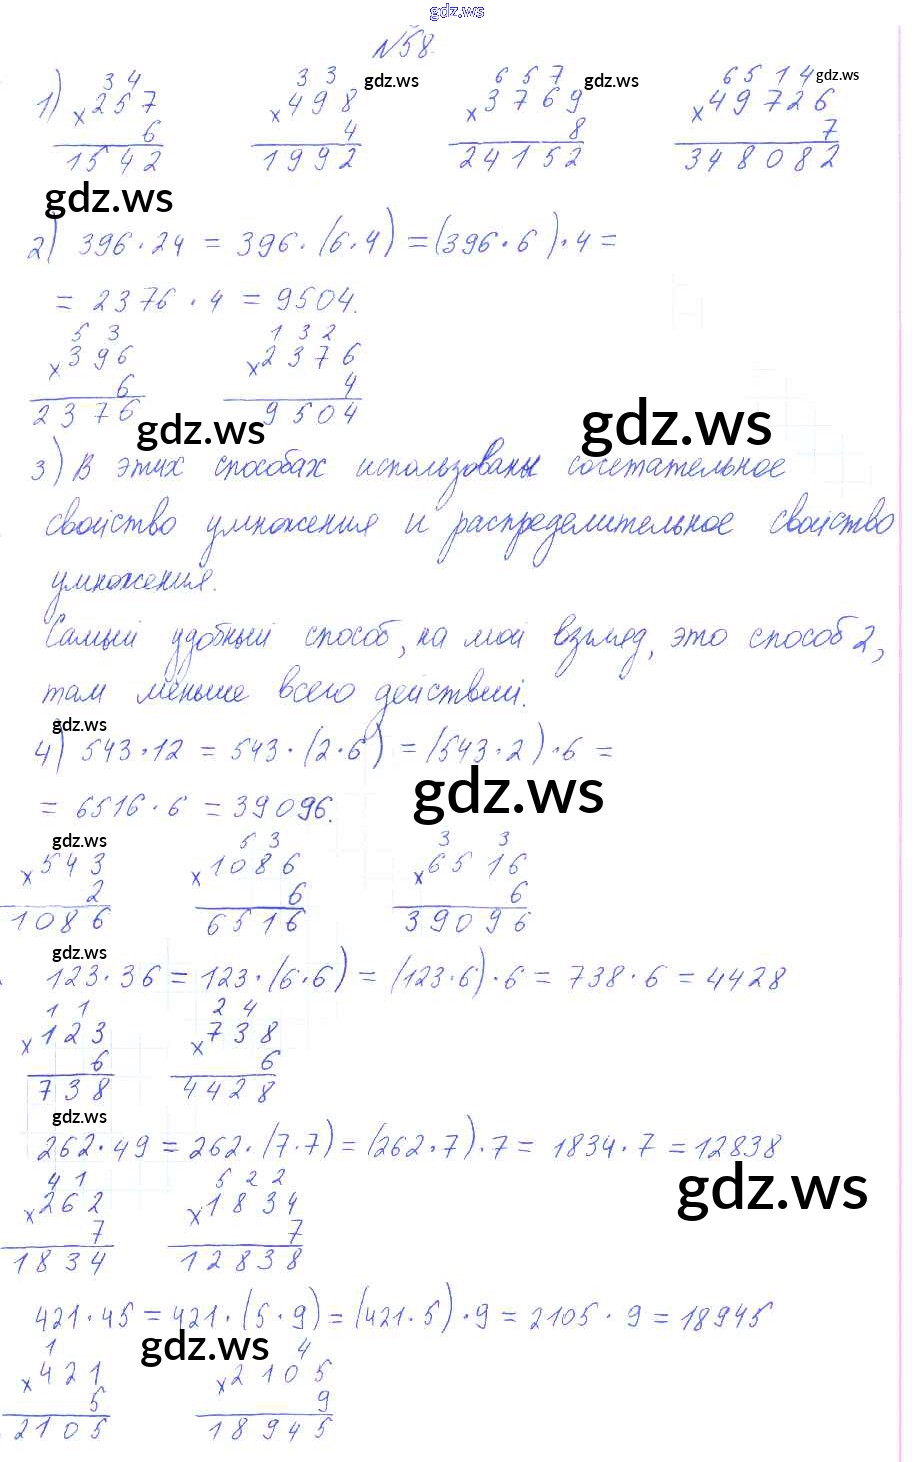 gdz.ws
№58.
3 4 3 3 gdz.ws 6 5 7 gdz.ws 6 5 1 4 gdz.ws
1) × 257 × 498 × 3769 × 49726
6 4 8 7
1542 1992 24152 348082
gdz.ws
2) 396 · 24 = 396 · (6 · 4) = (396 · 6) · 4 =
= 2376 · 4 = 9504.
5 3 1 3 2
× 396 × 2376
6 4
2376 9504
gdz.ws gdz.ws
3) В этих способах использованы сочетательное
свойство умножения и распределительное свойство
умножения.
Самый удобный способ, на мой взгляд, это способ 2,
там меньше всего действий.
gdz.ws
4) 543 · 12 = 543 · (2 · 6) = (543 · 2) · 6 =
= 6516 · 6 = 39096.
gdz.ws
gdz.ws 5 3 3 3
× 543 × 1086 × 6516
2 6 6
1086 6516 39096
gdz.ws
123 · 36 = 123 · (6 · 6) = (123 · 6) · 6 = 738 · 6 = 4428
1 1 2 4
× 123 × 738
6 6
738 4428
gdz.ws
262 · 49 = 262 · (7 · 7) = (262 · 7) · 7 = 1834 · 7 = 12838
4 1 5 2 2 gdz.ws
× 262 × 1834
7 7
1834 12838
421 · 45 = 421 · (5 · 9) = (421 · 5) · 9 = 2105 · 9 = 18945
1 gdz.ws 4
× 421 × 2105
5 9
2105 18945